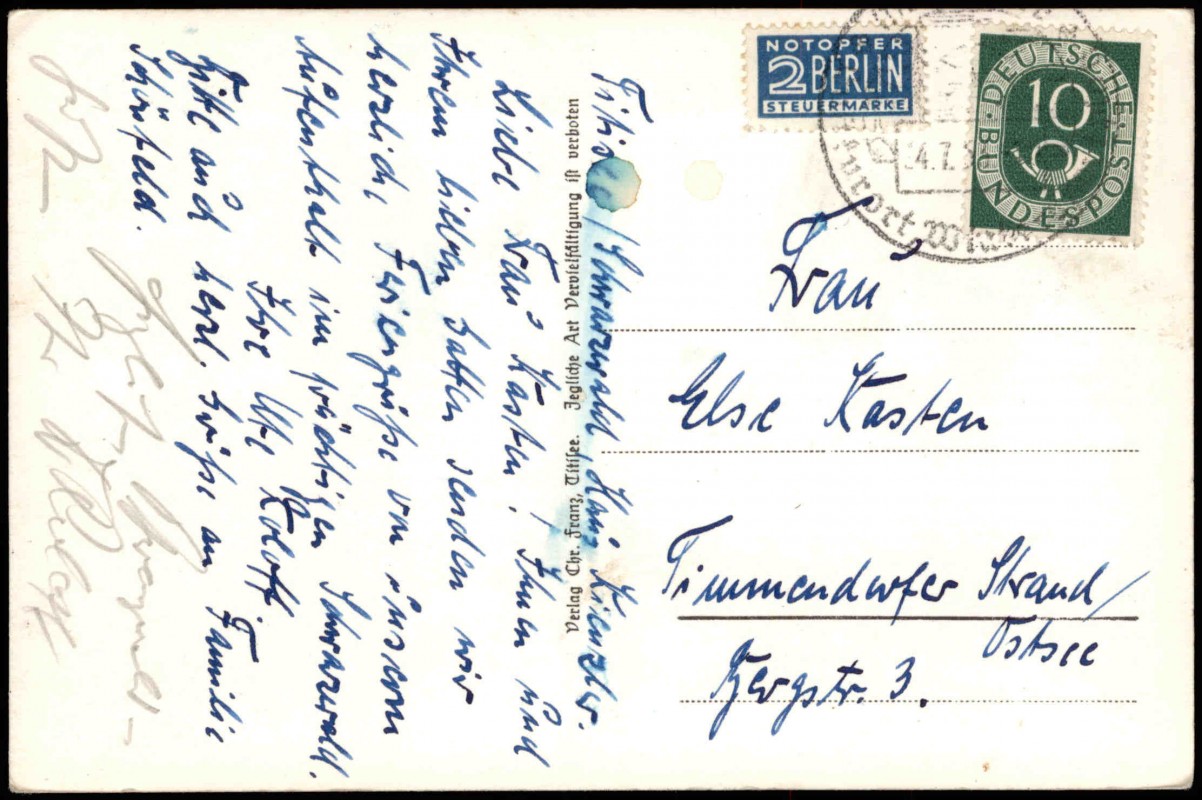 Titisee/Schwarzwald, Haus Kienzler.
Liebe Frau Kasten! Ihnen und
Ihrem lieben Gatten senden wir
herzlich. Feriengrüße von unserem
Aufenthalt im prächtigen Schwarzwald.
Ihre Ute Koloff.
Bitte auch herzl. Grüße an Familie
Schönfeld.
Verlag Chr. Franz, Titisee. Jegliche Art Vervielfältigung ist verboten
NOTOPFER
2 BERLIN
STEUERMARKE
DEUTSCHE BUNDESPOST
10
4.7.5
Kurort
Frau
Else Kasten
Timmendorfer Strand/
Ostsee
Bergstr. 3.